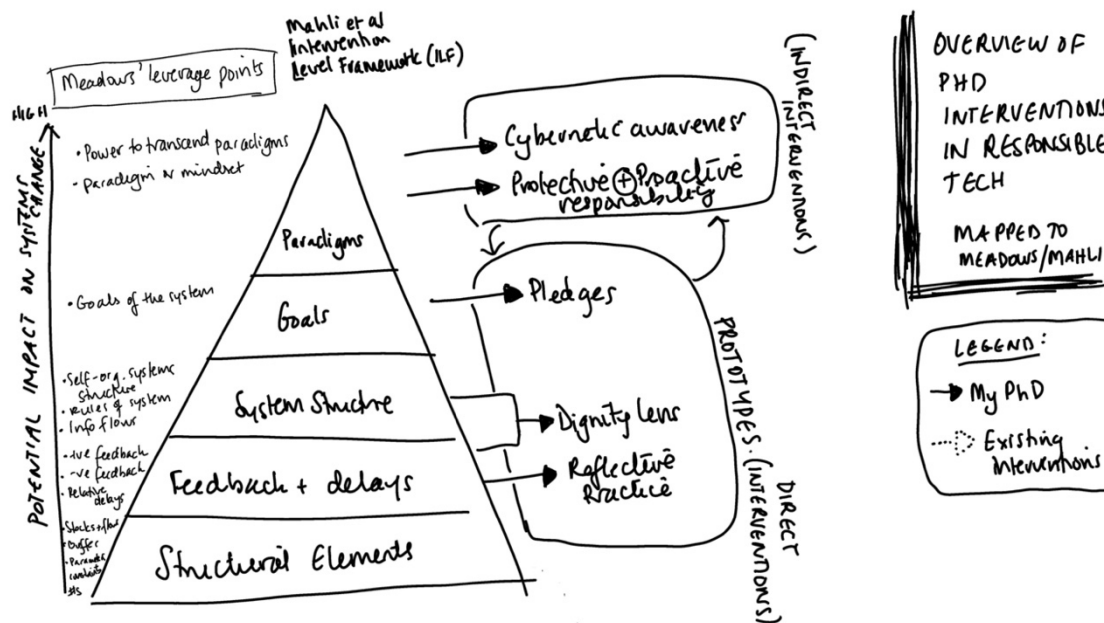 Mahli et al
Intervention
Level Framework (ILF)
Meadows' leverage points
HIGH
POTENTIAL IMPACT ON SYSTEMS
CHANGE
• Power to transcend paradigms
• Paradigm or mindset
• Goals of the system
• Self-org. systems
structure
• Rules of system
• Info flows
• +ve feedback
• -ve feedback
• Relative
delays
• Stocks + flows
• Buffer
•
constraints
#s
Paradigms
Goals
System Structre
Feedback + delays
Structural Elements
Cybernetic awareness
Protective + Proactive
responsibility
(INDIRECT
INTERVENTIONS)
Pledges
Dignity lens
Reflective
Practice
PROTOTYPES.
DIRECT
(INTERVENTIONS)
OVERVIEW OF
PHD
INTERVENTIONS
IN RESPONSIBLE
TECH
MAPPED TO
MEADOWS/MAHLI
LEGEND:
My PhD
Existing
interventions